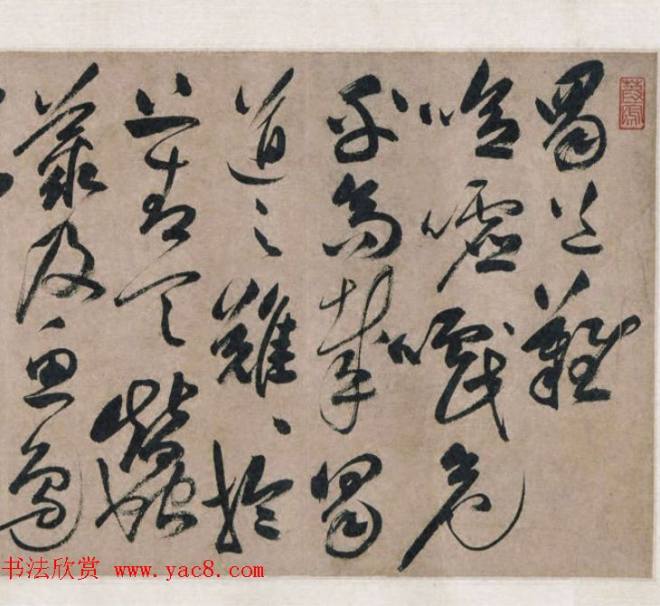 蜀道難
噫嘘嚱危
乎高哉蜀
道之難〻於
上青天蠶
叢及魚鳧
书法欣赏 www.yac8.com